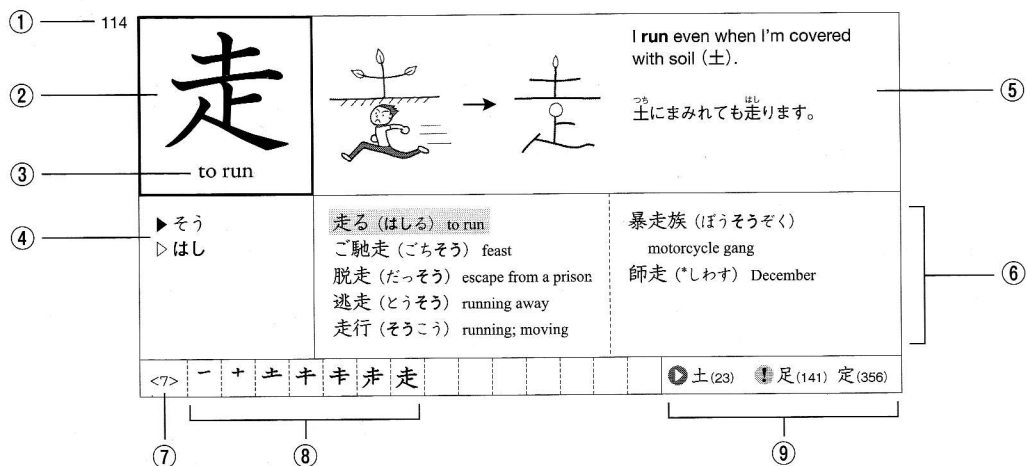 ① 114
②
走
③ to run
I run even when I'm covered
with soil (土).
つち はし
土にまみれても走ります。
⑤
④
▶そう
▷はし
走る (はしる) to run
ご馳走 (ごちそう) feast
脱走 (だっそう) escape from a prison
逃走 (とうそう) running away
走行 (そうこう) running; moving
暴走族 (ぼうそうぞく)
motorcycle gang
師走 (*しわす) December
⑥
<7> 一 十 土 走
土(23) ! 足(141) 定(356)
⑦ ⑧ ⑨